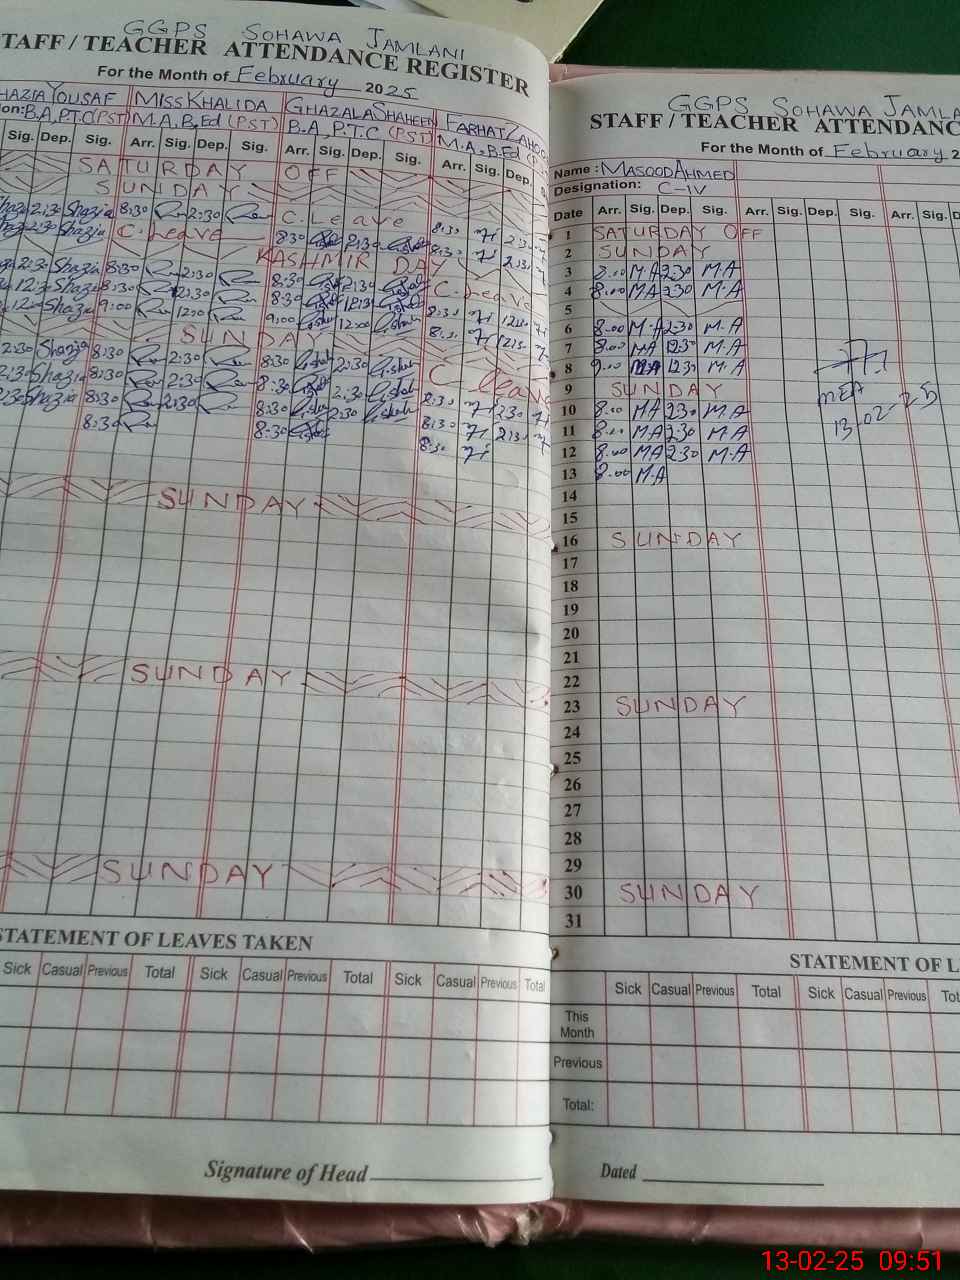 GGPS SOHAWA JAMLANI
STAFF / TEACHER ATTENDANCE REGISTER
For the Month of February 2025
SHAZIA YOUSAF MISS KHALIDA GHAZALA SHAHEEN FARHAT ZAHOOR
B.A, P.T.C (PST) M.A, B.Ed (PST) B.A, P.T.C (PST) M.A, B.Ed
Sig. Dep. Sig. Arr. Sig. Dep. Sig. Arr. Sig. Dep. Sig. Arr. Sig. Dep.
SATURDAY OFF
SUNDAY
2:30 Shazia 8:30 2:30 C. Leave 8:30 2:30
2:30 Shazia C. Leave 8:30 2:30 8:30 2:30
KASHMIR DAY
2:30 Shazia 8:30 2:30 8:30 2:30 C. Leave
12:30 Shazia 8:30 12:30 8:30 12:30 8:30 12:30
12:00 Shazia 9:00 12:00 9:00 12:00 8:30 12:30
SUNDAY
2:30 Shazia 8:30 2:30 8:30 2:30 C. leave
2:30 Shazia 8:30 2:30 8:30 2:30 8:30 2:30
2:30 Shazia 8:30 2:30 8:30 2:30 8:30 2:30
8:30 8:30 8:30
SUNDAY
SUNDAY
SUNDAY
STATEMENT OF LEAVES TAKEN
Sick Casual Previous Total Sick Casual Previous Total Sick Casual Previous Total
Signature of Head
GGPS SOHAWA JAMLA
STAFF / TEACHER ATTENDANC
For the Month of February 2
Name : MASOOD AHMED
Designation: C-IV
Date Arr. Sig. Dep. Sig. Arr. Sig. Dep. Sig. Arr. Sig. D
1 SATURDAY OFF
2 SUNDAY
3 8:00 M.A 2:30 M.A
4 8:00 M.A 2:30 M.A
5
6 8:00 M.A 2:30 M.A
7 8:00 M.A 12:30 M.A
8 9:00 M.A 12:30 M.A
9 SUNDAY
MEA
10 8:00 M.A 2:30 M.A
13-02-25
11 8:00 M.A 2:30 M.A
12 8:00 M.A 2:30 M.A
13 8:00 M.A
14
15
16 SUNDAY
17
18
19
20
21
22
23 SUNDAY
24
25
26
27
28
29
30 SUNDAY
31
STATEMENT OF L
Sick Casual Previous Total Sick Casual Previous Tot
This
Month
Previous
Total:
Dated
13-02-25 09:51